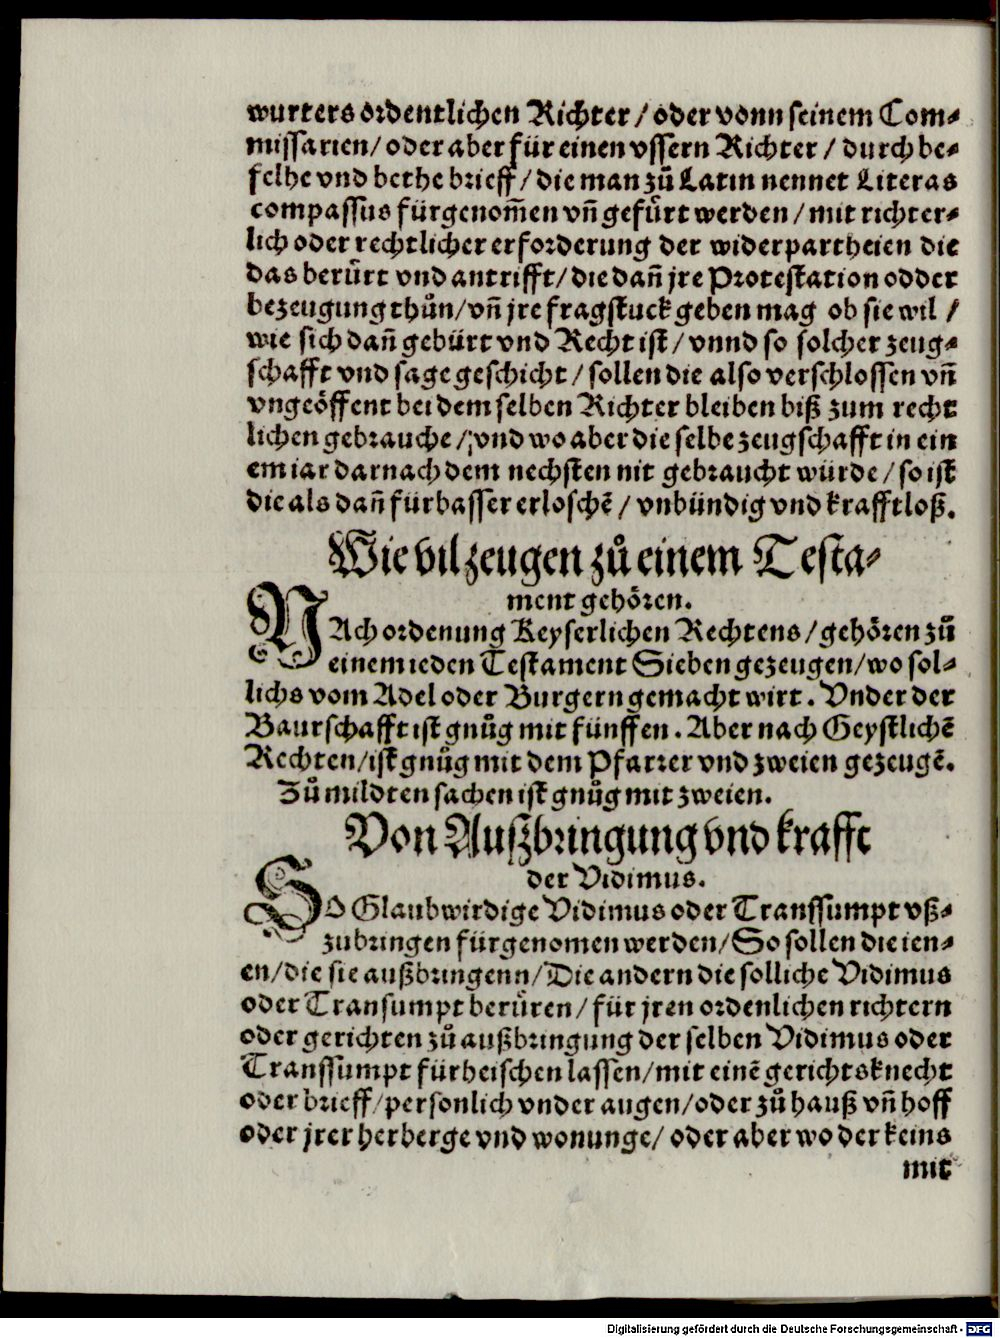 wurters ordentlichen Richter / oder vonn seinem Com⸗
missarien / oder aber für einen vssern Richter / durch be⸗
felhe vnd bethe brieff / die man zů Latin nennet Literas
compassus fürgenom̄en vn̄ gefürt werden / mit richter⸗
lich oder rechtlicher erforderung der widerpartheien die
das berürt vnd antrifft / die dan̄ jre Protestation odder
bezeugung thůn / vn̄ jre fragstuck geben mag ob sie wil /
wie sich dan̄ gebürt vnd Recht ist / vnnd so solcher zeug⸗
schafft vnd sage geschicht / sollen die also verschlossen vn̄
vngeöffent bei dem selben Richter bleiben biß zum recht
lichen gebrauche / vnd wo aber die selbe zeugschafft in ein
em iar darnach dem nechsten nit gebraucht würde / so ist
die als dan̄ fürbasser erloschē / vnbündig vnd krafftloß.
Wie vil zeugen zů einem Testa⸗
ment gehören.
NAch ordenung Keyserlichen Rechtens / gehören zů
einem ieden Testament Sieben gezeugen / wo sol⸗
lichs vom Adel oder Burgern gemacht wirt. Vnder der
Baurschafft ist gnůg mit fünffen. Aber nach Geystlichē
Rechten / ist gnůg mit dem Pfarrer vnd zweien gezeugē.
Zů mildten sachen ist gnůg mit zweien.
Von Außbringung vnd krafft
der Vidimus.
SO Glaubwirdige Vidimus oder Transsumpt vß⸗
zubringen fürgenomen werden / So sollen die ien⸗
en / die sie außbringenn / Die andern die solliche Vidimus
oder Transumpt berüren / für jren ordenlichen richtern
oder gerichten zů außbringung der selben Vidimus oder
Transsumpt fürheischen lassen / mit einē gerichtsknecht
oder brieff / personlich vnder augen / oder zů hauß vn̄ hoff
oder jrer herberge vnd wonunge / oder aber wo der keins
mit
Digitalisierung gefördert durch die Deutsche Forschungsgemeinschaft - DFG